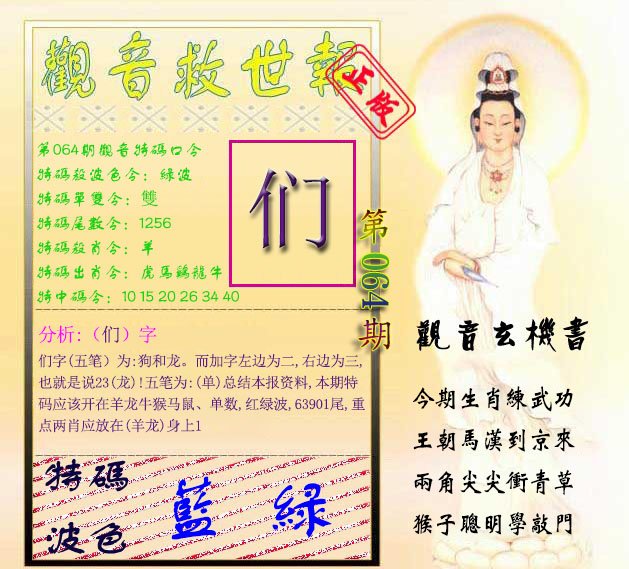 觀音救世報
正版
第064期觀音特碼口令
特碼殺波色令：綠波
特碼單雙令：雙
特碼尾數令：1256
特碼殺肖令：羊
特碼出肖令：虎馬鷄龍牛
特中碼令：10 15 20 26 34 40
们
第064期
分析:（们）字
们字(五笔）为:狗和龙。而加字左边为二,右边为三,
也就是说23(龙)!五笔为:(单)总结本报资料,本期特
码应该开在羊龙牛猴马鼠、单数,红绿波,63901尾,重
点两肖应放在(羊龙)身上1
特碼
波色
藍 綠
觀音玄機書
今期生肖練武功
王朝馬漢到京來
兩角尖尖衝青草
猴子聰明學敲門